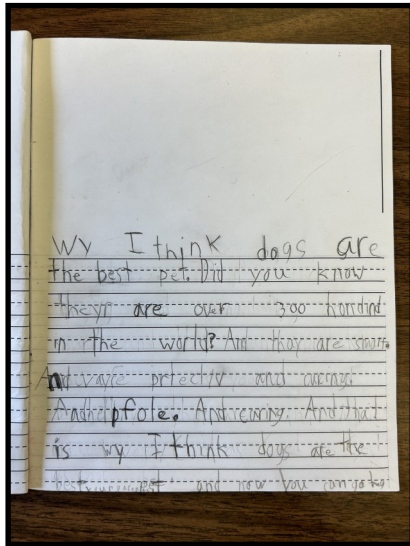 Wy I think dogs are
the best pet. Did you know
theyr are over 300 hondind
in the world? And thay are smart.
And vayre prtectiv and
And helpfole. And caring. And that
is wy I think dogs are the
best pet and now you can go